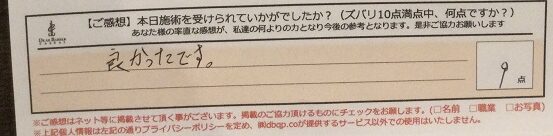 【ご感想】本日施術を受けられていかがでしたか？（ズバリ10点満点中、何点ですか？）
あなた様の率直な感想が、私達の何よりの力となり今後の参考となります。是非ご協力お願いします
良かったです。
9 点
※ご感想はネット等に掲載させて頂く事がございます。掲載のご協力頂けるものにチェックをお願します。（□名前 □職業 □お写真）
※上記個人情報は左記の通りプライバシーポリシーを定め、㈱dbqp.coが提供するサービス以外での使用はいたしません。